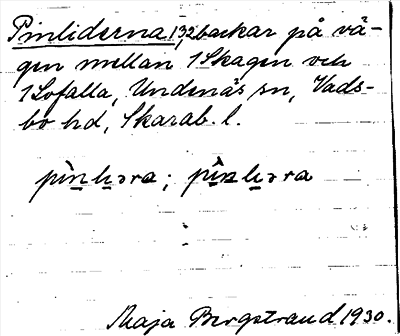 Pinliderna 1,32 backar på vä-
gen mellan 1 Skagen och
1 Sofalla, Undenäs sn, Vads-
bo hd, Skarab. l.
pìnḻəra; pînḻəra
Maja Bergstrand 1930.